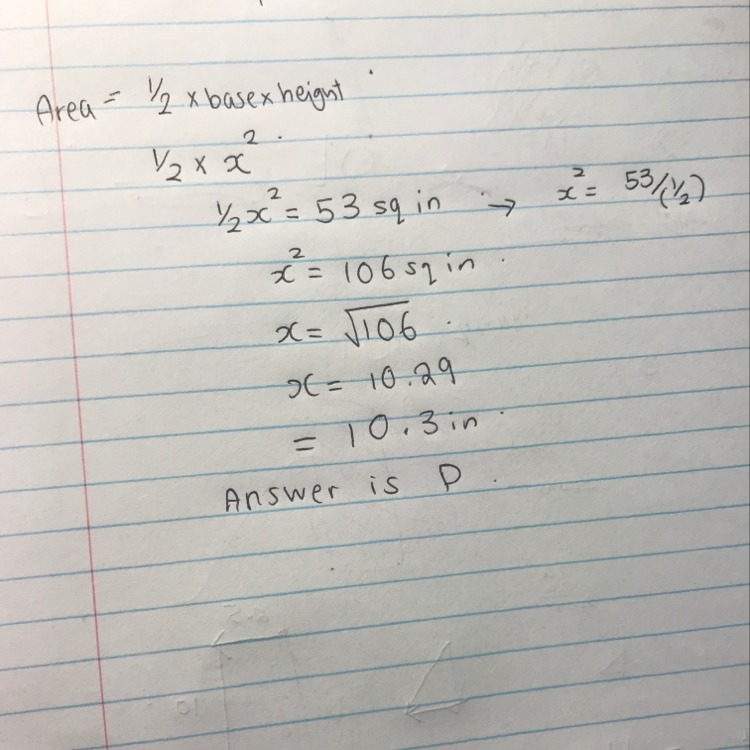 Area = 1/2 × base × height
1/2 × x²
1/2x² = 53 sq in → x² = 53/(1/2)
x² = 106 sq in
x = √106
x = 10.29
= 10.3 in
Answer is D